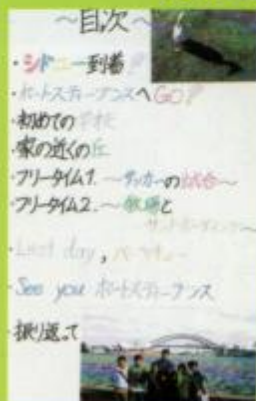 ～目次～
・シドニー到着!!
・ポートスティーブンスへGO!!
・初めての学校
・家の近くの丘
・フリータイム1. ～サッカーの試合～
・フリータイム2. ～牧場と
サンドボーディング～
・Last day, バーベキュー
・See you ポートスティーブンス
・振り返って